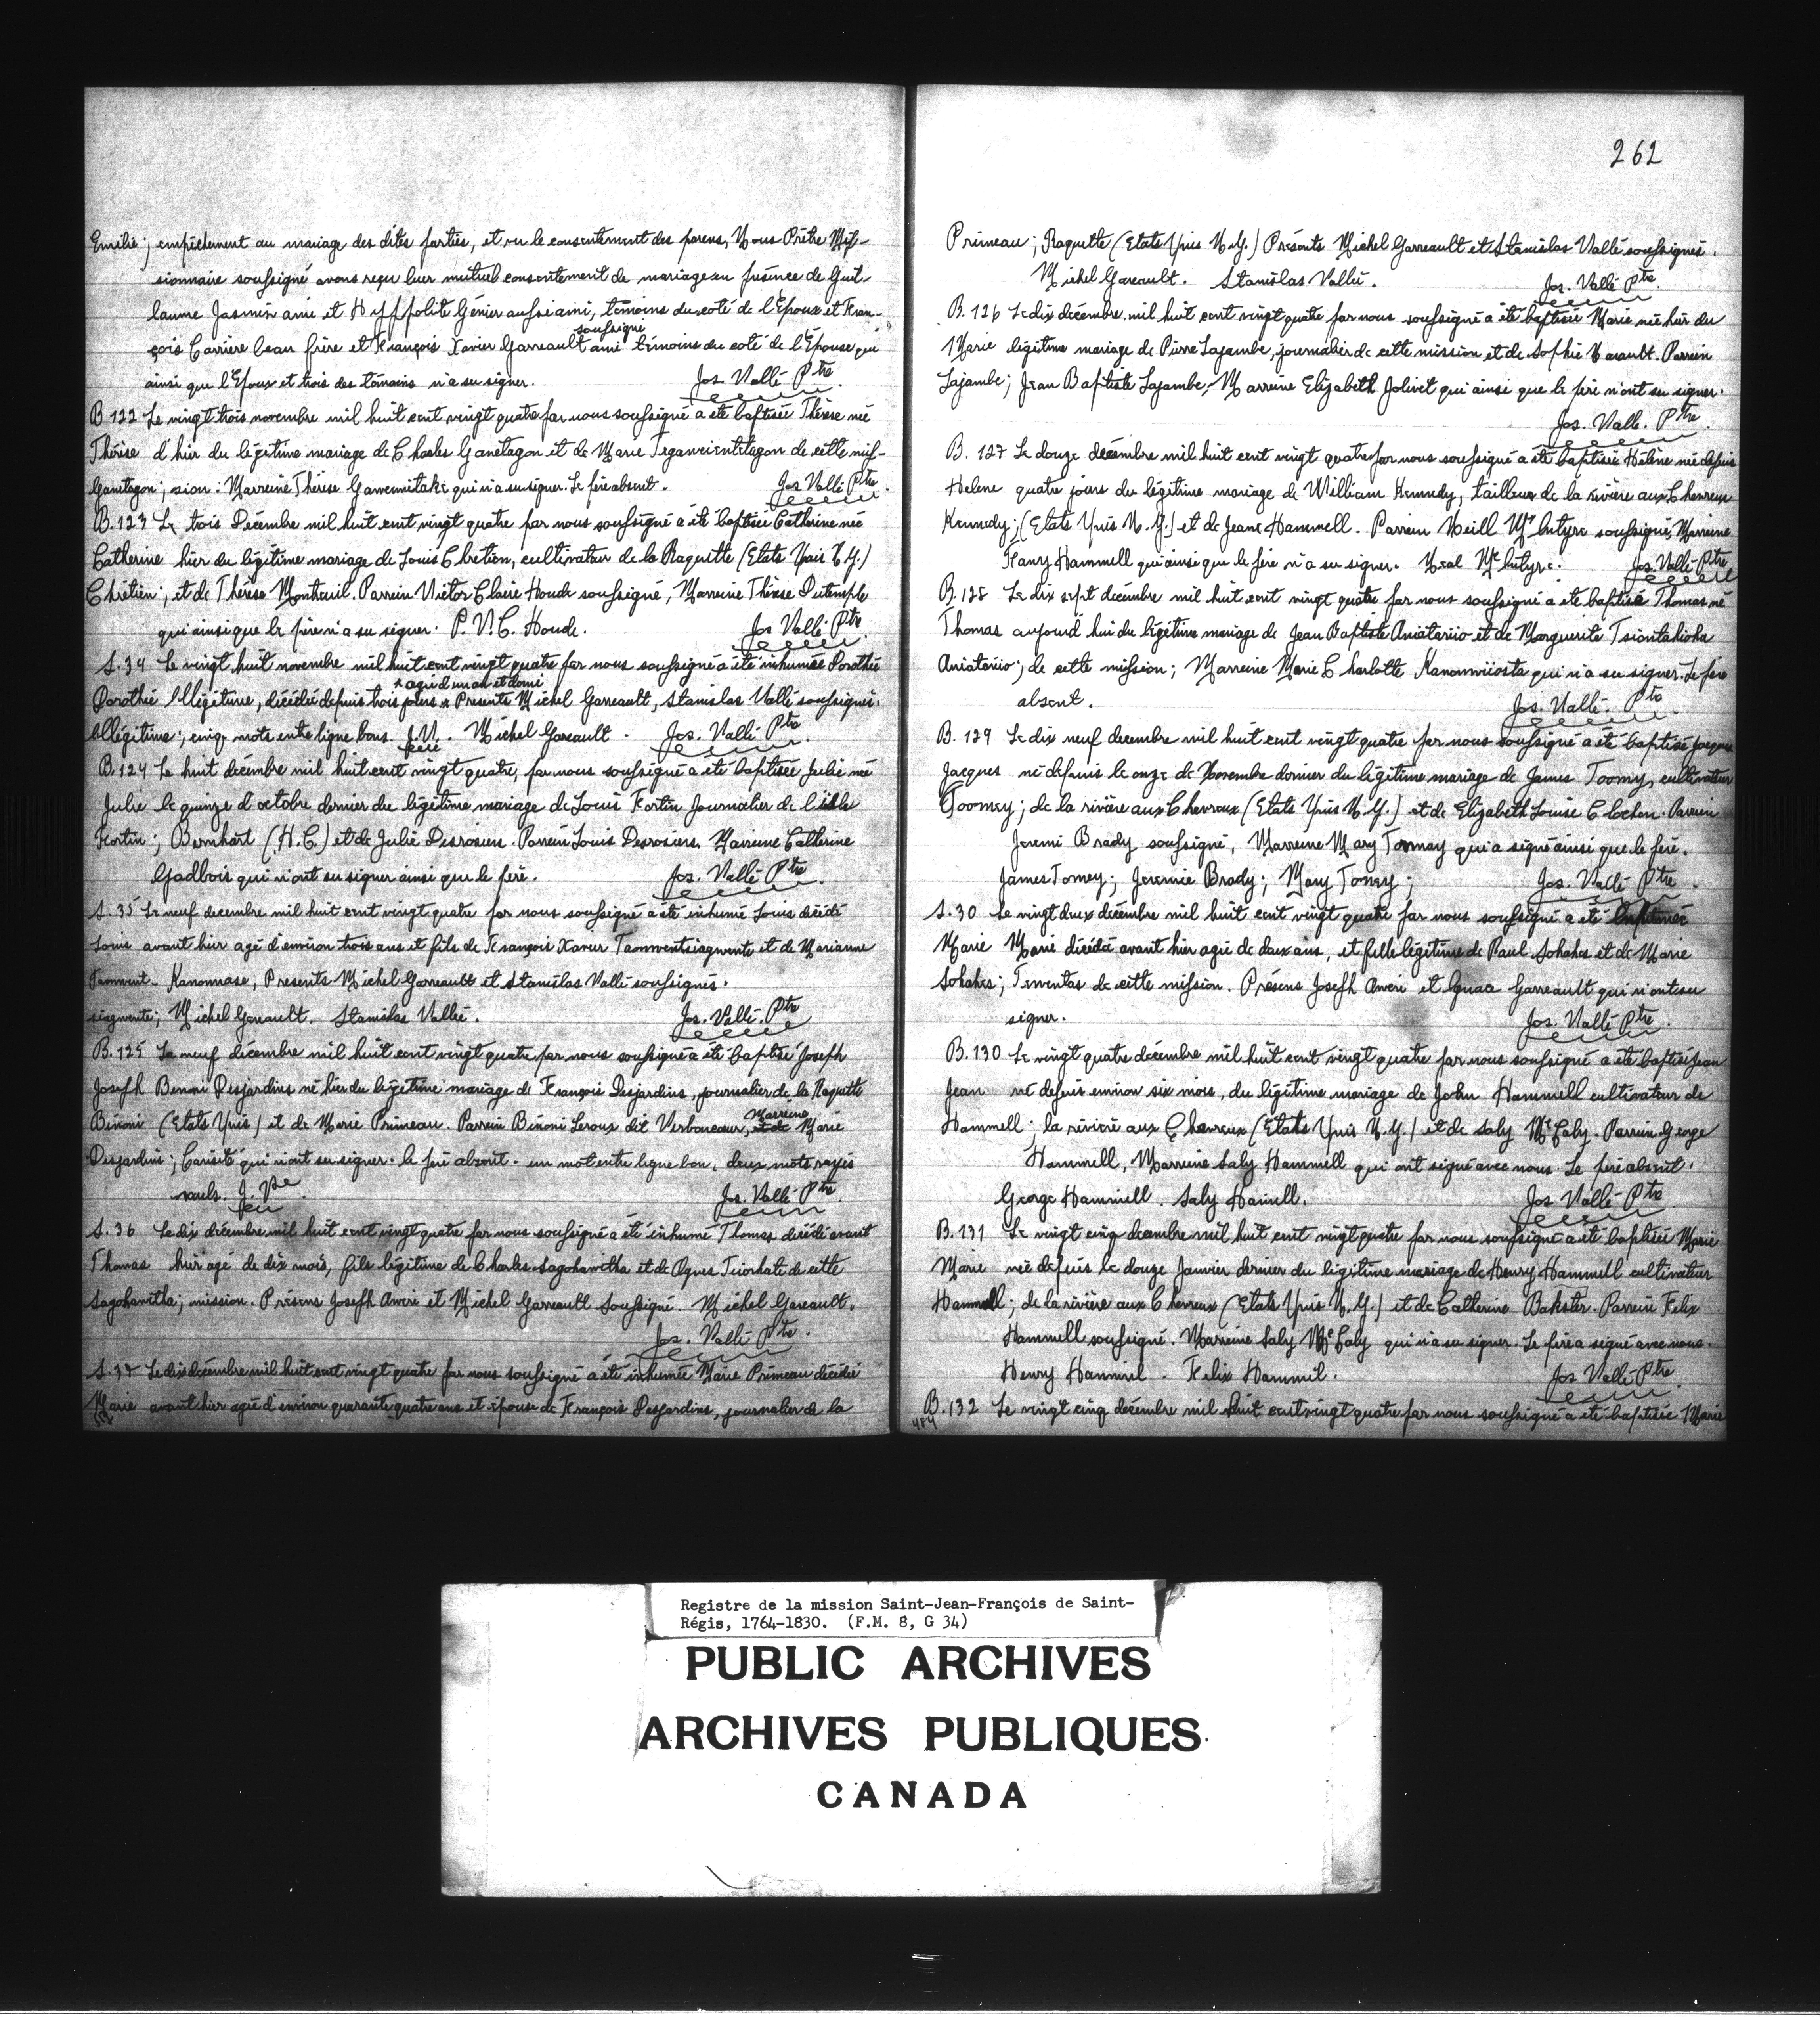 Emilie; empêchement au mariage des dites parties, et vu le consentement des parens, Nous Prêtre Mis-
sionnaire soussigné avons reçu leur mutuel consentement de mariage en présence de Guil-
laume Jasmin ami et Hyppolite Génier aussi ami, témoins du coté de l'Epoux et Fran-
soussigné
çois Carrière beau frère et François Xavier Garreault ami témoins du coté de l'Épouse qui
ainsi que l'Epoux et trois des témoins n'a su signer. Jos. Vallé Ptre
B 122 Le vingt trois novembre mil huit cent vingt quatre par nous soussigné a été baptisée Thérèse née
Thérèse d'hier du légitime mariage de Charles Ganetagon et de Marie de cette mis-
Ganetagon; sion: Marreine Thérèse qui n'a su signer. Le père absent. Jos Vallé Ptre.
B. 123 Le trois Décembre mil huit cent vingt quatre par nous soussigné a été baptisée Catherine née
Catherine hier du légitime mariage de Louis Chretien, cultivateur de la Raquette (Etats Unis N.Y.)
Chrétien; et de Thérèse Montreuil. Parrein Victor Claire Houde soussigné, Marreine Thérèse Dutemple
qui ainsi que le père n'a su signer. P. V. C. Houde. Jos Vallé Ptre
S. 34 Le vingt huit novembre mil huit cent vingt quatre par nous soussigné a été inhumée Dorothée
* agé d'un an et demi
Dorothée Illégitime, décédée depuis trois jours * Presents Michel Garreault, Stanislas Vallé soussignés.
Illégitime; cinq mots entre ligne bons. J.V. Michel Gareault. Jos. Vallé Ptre
B. 124 Le huit décembre mil huit cent vingt quatre, par nous soussigné a été baptisée Julie née
Julie le quinze d'octobre dernier du légitime mariage de Louis Fortin Journalier de l'isle
Fortin; Bernhart (H.C.) et de Julie Desrosiers. Parrein Louis Desrosiers, Marreine Catherine
Gadbois qui n'ont su signer ainsi que le père. Jos. Vallé Ptre.
S. 35 Le neuf decembre mil huit cent vingt quatre par nous soussigné a été inhumé Louis décédé
Louis avant hier agé d'environ trois ans et fils de François Xavier et de Marianne
Kanonnase, Presents Michel Garreault et Stanislas Vallé soussignés.
Michel Gareault. Stanislas Vallée. Jos. Vallé. Ptre
B. 125 Le neuf décembre mil huit cent vingt quatre par nous soussigné a été baptisé Joseph
Joseph Benoni Desjardins né hier du légitime mariage de François Desjardins, journalier de la Raquette
Marreine
Bénoni (Etats Unis) et de Marie Primeau. Parrein Bénoni Leroux dit Verboncoeur, et de Marie
Desjardins; qui n'ont su signer. le père absent. un mot entre ligne bon, deux mots rayés
nuls. J. Ve Jos. Vallé Ptre.
S. 36 Le dix décembre mil huit cent vingt quatre par nous soussigné a été inhumé Thomas décédé avant
Thomas hier agé de dix mois, fils légitime de Charles Sagohawitha et de Agnes de cette
Sagohawitha; mission. Présens Joseph Aweri et Michel Garreault Soussigné. Michel Gareault.
Jos. Vallé Ptre.
S. 37 Le dix décembre mil huit cent vingt quatre par nous soussigné a été inhumée Marie Primeau décédée
Marie avant hier agée d'environ quarante quatre ans et épouse de François Desjardins, journalier de la
262
Primeau; Raquette (Etats Unis N.Y.) Présents Michel Garreault et Stanislas Vallé soussignés.
Michel Gareault. Stanislas Vallée. Jos. Vallé Ptre.
B. 126 Le dix décembre mil huit cent vingt quatre par nous soussigné a été baptisée Marie née hier du
Marie légitime mariage de Pierre Lajambe, journalier de cette mission et de Sophie. Parrein
Lajambe; Jean Baptiste Lajambe, Marreine Elizabeth Jolivet qui ainsi que le père n'ont su signer.
Jos. Vallé. Ptre.
B. 127 Le douze décembre mil huit cent vingt quatre par nous soussigné a été baptisée Hélène née depuis
Helene quatre jours du légitime mariage de William Kennedy, tailleur de la rivière aux Chevreux
Kennedy; (Etats Unis N.Y.) et de Jeane Hammell. Parrein Neill Mc Intyre soussigné, Marreine
Hammell qui ainsi que le père n'a su signer. Neal Mc Intyre. Jos. Vallé Ptre
B. 128 Le dix sept decembre mil huit cent vingt quatre par nous soussigné a été baptisé Thomas né
Thomas aujourd'hui du légitime mariage de Jean Baptiste Aniatariio et de Marguerite Tsiontahioha
Aniatariio; de cette mission; Marreine Marie Charlotte Kanonwiiosta qui n'a su signer. Le père
absent. Jos. Vallé. Ptre
B. 129 Le dix neuf decembre mil huit cent vingt quatre par nous soussigné a été baptisé Jacques
Jacques né depuis le onze de Novembre dernier du légitime mariage de James Toomy, cultivateur
Toomey; de la rivière aux Chevreux (Etats Unis N.Y.) et de Elizabeth Louise Clochon. Parrein
Jeremi Brady soussigné, Marreine Mary Tommay qui a signé ainsi que le père.
James Tomey; Jeremie Brady; Mary Tomey; Jos. Vallé Ptre.
S. 30 Le vingt deux décembre mil huit cent vingt quatre par nous soussigné a été inhumée
Marie Marie décédée avant hier agée de deux ans, et fille légitime de Paul Sohahes et de Marie
Sohahes; de cette mission. Présens Joseph Aweri et Ignace Garreault qui n'ont su
signer. Jos. Vallé Ptre.
B. 130 Le vingt quatre décembre mil huit cent vingt quatre par nous soussigné a été baptisé Jean
Jean né depuis environ six mois, du légitime mariage de John Hammell cultivateur de
Hammell; la rivière aux Chevreux (Etats Unis N.Y.) et de Saly Mc Caly. Parrein George
Hammell, Marreine Saly Hammell qui ont signé avec nous. Le père absent.
George Hammell. Saly Hamell. Jos Vallé Ptre
B. 131 Le vingt cinq decembre mil huit cent vingt quatre par nous soussigné a été baptisée Marie
Marie née depuis le douze Janvier dernier du légitime mariage de Henry Hammell cultivateur
Hammell; de la rivière aux Chevreux (Etats Unis N.Y.) et de Catherine Bakster. Parrein Felix
Hammell soussigné. Marreine Saly Mc Caly qui n'a su signer. Le père a signé avec nous.
Henry Hammel. Felix Hammil. Jos Vallé Ptre
B. 132 Le vingt cinq décembre mil huit cent vingt quatre par nous soussigné a été baptisée Marie
484
Registre de la mission Saint-Jean-François de Saint-
Régis, 1764-1830. (F.M. 8, G 34)
PUBLIC ARCHIVES
ARCHIVES PUBLIQUES
CANADA